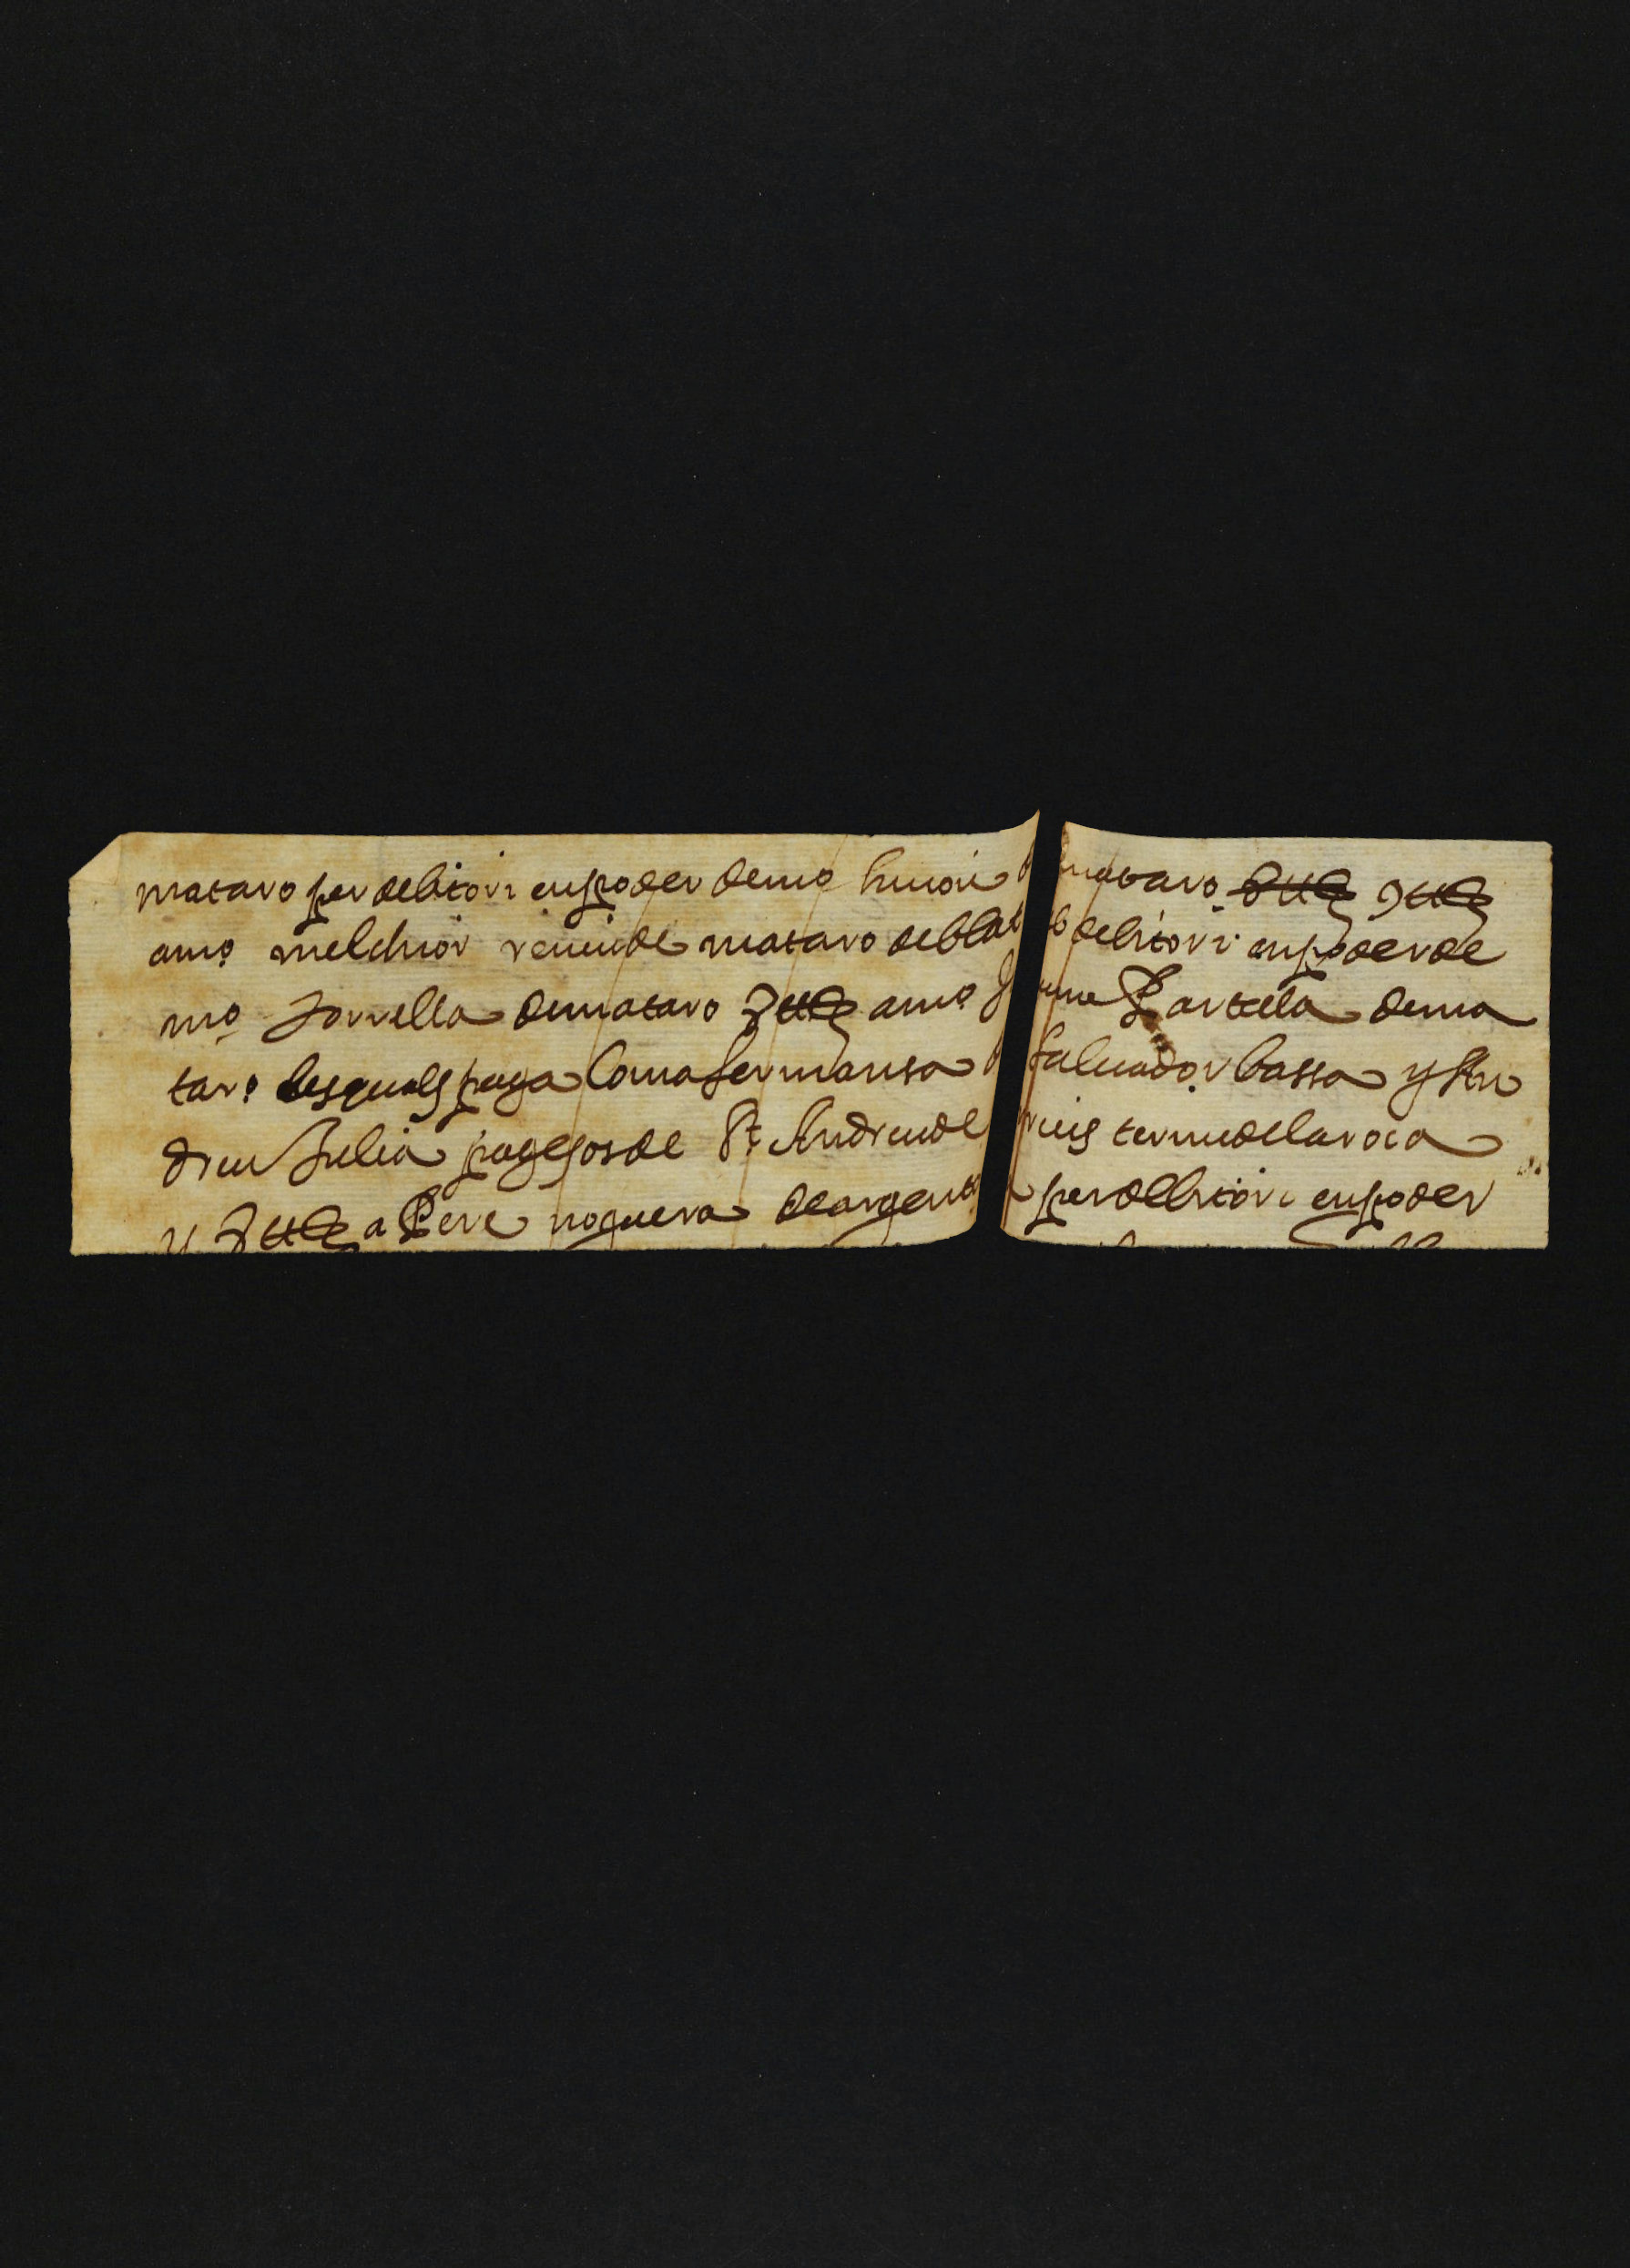 mataro per debitori en poder de mo Simon mataro 9 ll
a mo melchior reniu de mataro de blat debitori en poder de
mo Jovella de mataro 7 ll a mo Jaume Partella de ma
taro les quals paga com a fermansa Saluador bassa y
dreu Julia pagesos de St Andreu de terme de la roca
y 7 ll a Pere noguera de argento per debitori en poder